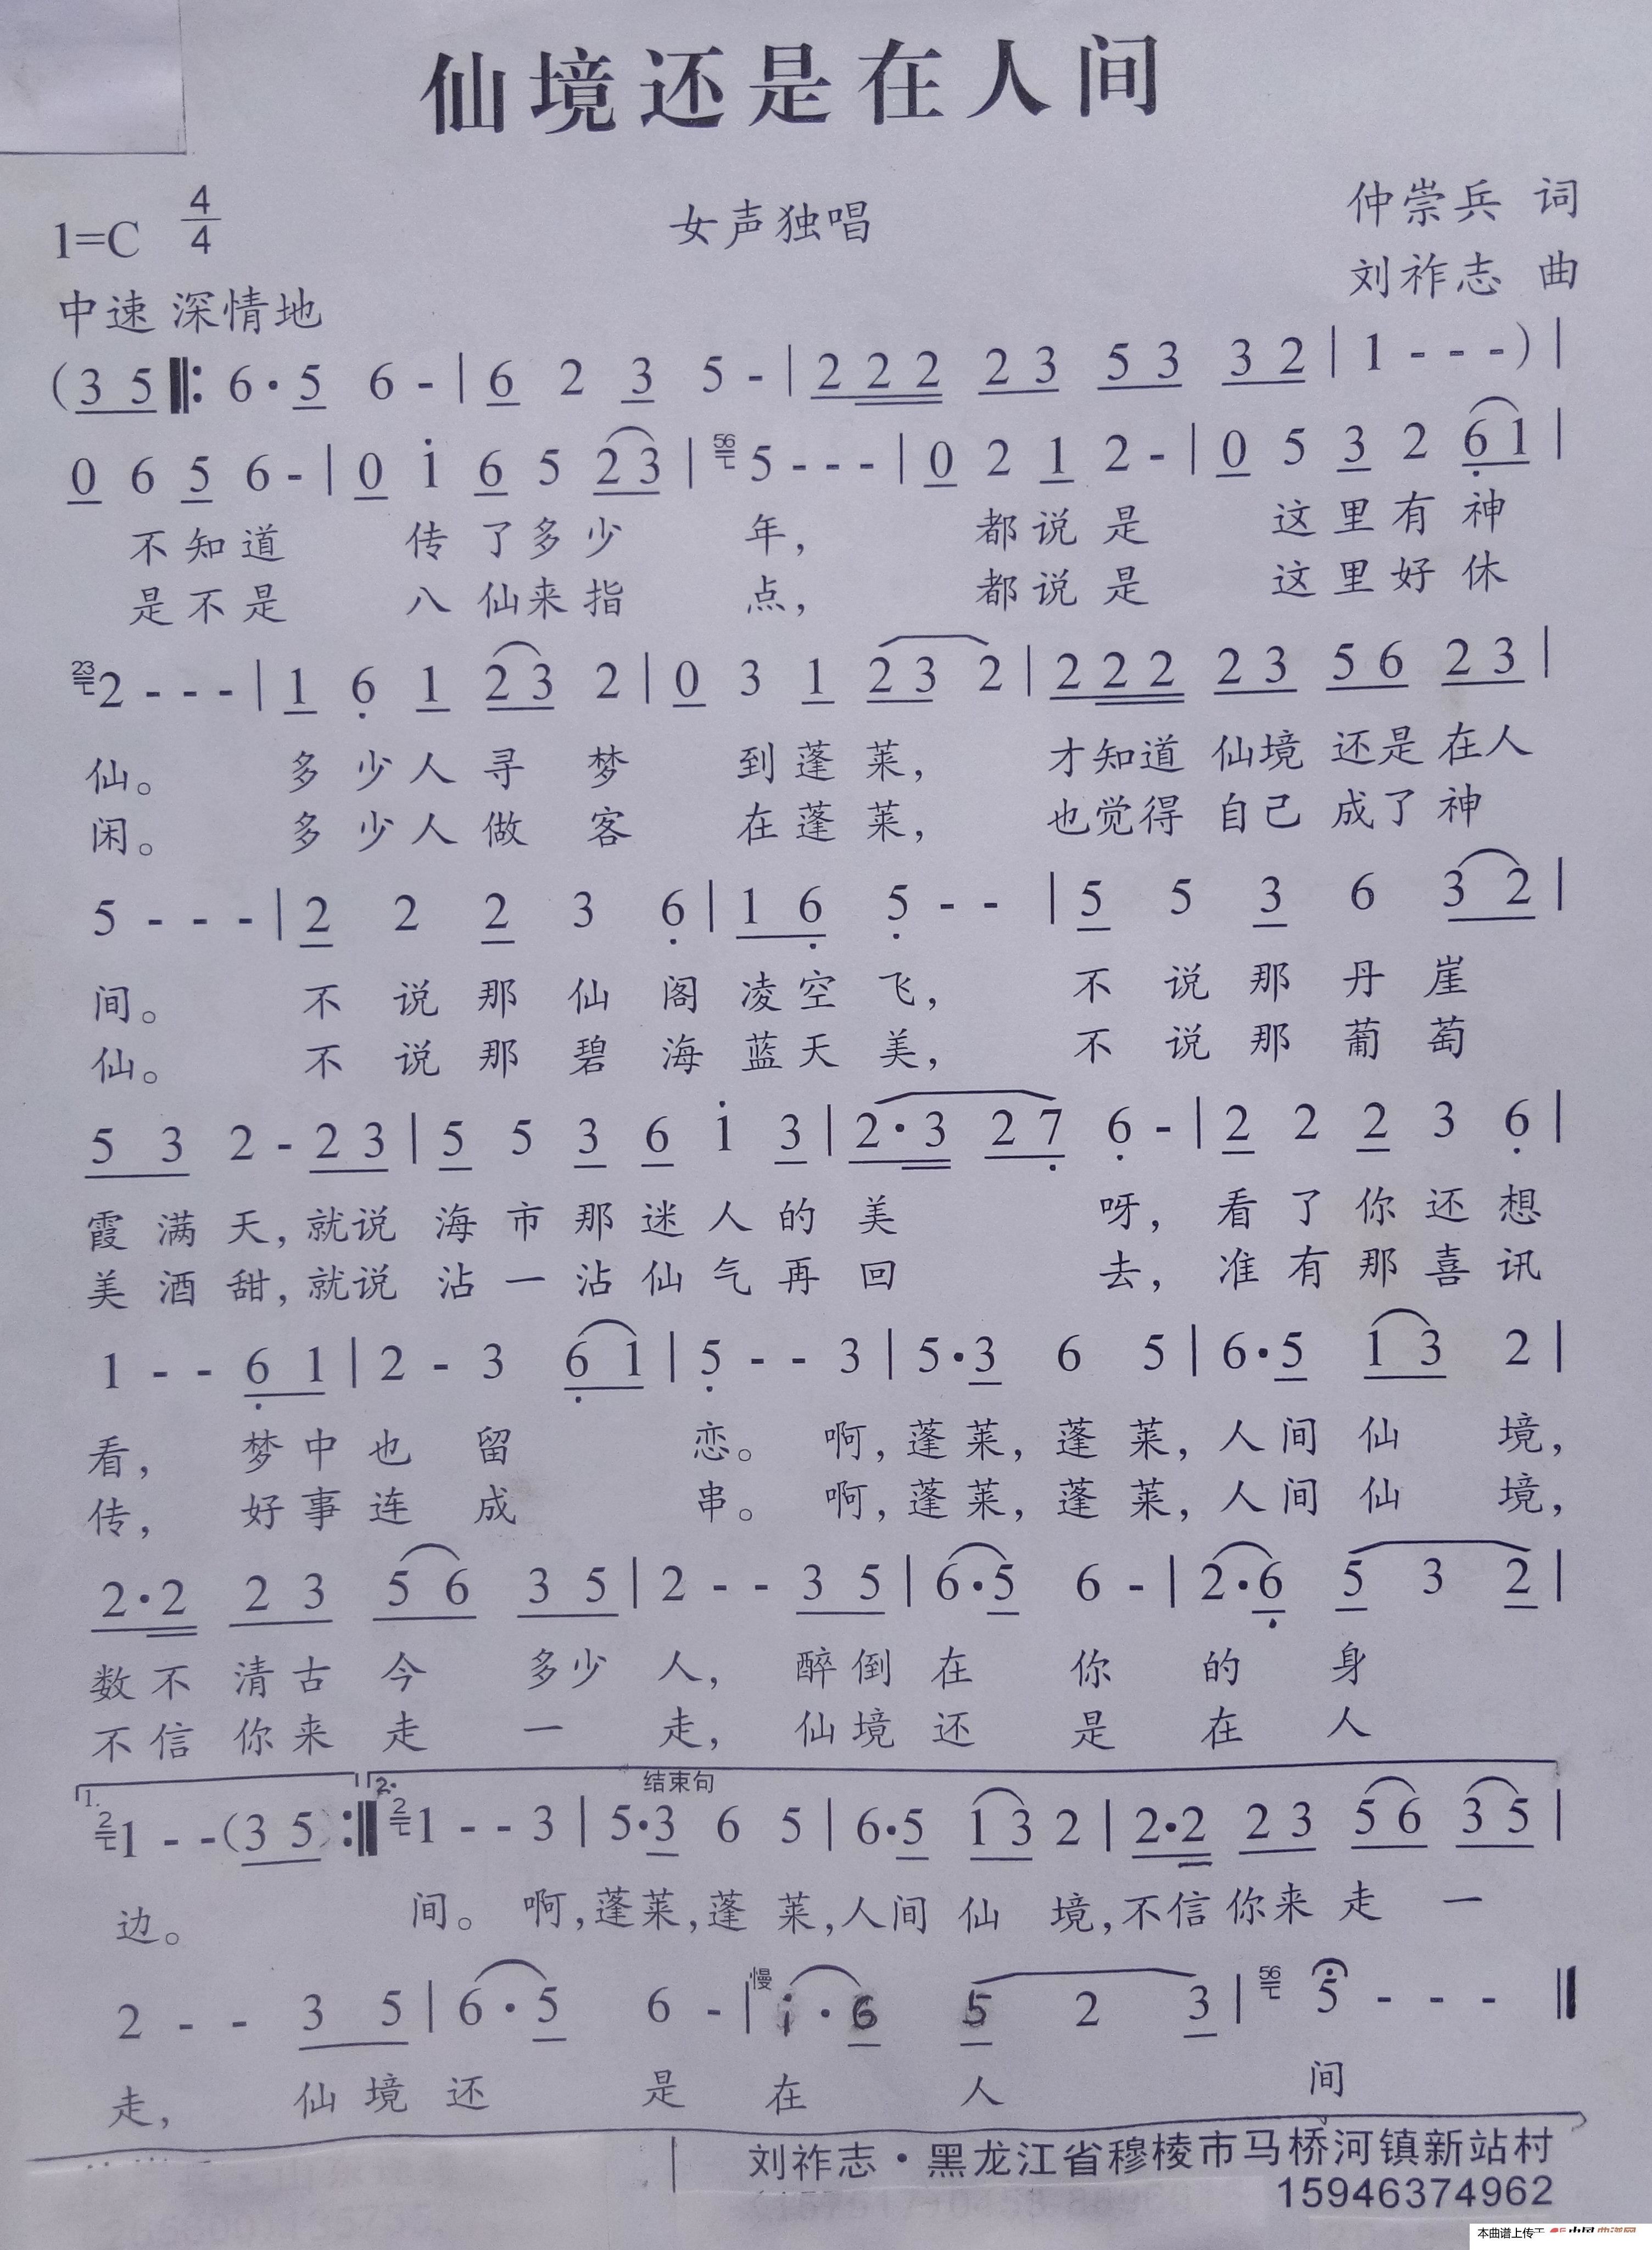 仙境还是在人间
1=C 4/4 女声独唱 仲崇兵 词
中速 深情地 刘祚志 曲
(3 5 ‖: 6·5 6 - | 6 2 3 5 - | 2 2 2 2 3 5 3 3 2 | 1 - - -) |
0 6 5 6 - | 0 i 6 5 2 3 | 56 5 - - - | 0 2 1 2 - | 0 5 3 2 6 1 |
不知道 传了多少 年, 都说是 这里有神
是不是 八仙来指 点, 都说是 这里好休
23 2 - - - | 1 6 1 2 3 2 | 0 3 1 2 3 2 | 2 2 2 2 3 5 6 2 3 |
仙。 多少人寻梦 到蓬莱, 才知道 仙境 还是在人
闲。 多少人做客 在蓬莱, 也觉得 自己 成了神
5 - - - | 2 2 2 3 6 | 1 6 5 - - | 5 5 3 6 3 2 |
间。 不说那仙阁凌空飞, 不说那丹崖
仙。 不说那碧海蓝天美, 不说那葡萄
5 3 2 - 2 3 | 5 5 3 6 i 3 | 2·3 2 7 6 - | 2 2 2 3 6 |
霞满天,就说海市那迷人的美 呀, 看了你还想
美酒甜,就说沾一沾仙气再回 去, 准有那喜讯
1 - - 6 1 | 2 - 3 6 1 | 5 - - 3 | 5·3 6 5 | 6·5 1 3 2 |
看, 梦中也留 恋。 啊,蓬莱,蓬莱,人间仙 境,
传, 好事连成 串。 啊,蓬莱,蓬莱,人间仙 境,
2·2 2 3 5 6 3 5 | 2 - - 3 5 | 6·5 6 - | 2·6 5 3 2 |
数不清古今 多少人, 醉倒在 你 的 身
不信你来走 一 走, 仙境还 是 在 人
1. 2. 结束句
2 1 - - (3 5) :‖ 2 1 - - 3 | 5·3 6 5 | 6·5 1 3 2 | 2·2 2 3 5 6 3 5 |
边。 间。 啊,蓬莱,蓬莱,人间仙 境,不信你来走 一
慢
2 - - 3 5 | 6·5 6 - | i·6 5 2 3 | 56 5 - - - ‖
走, 仙境还 是 在 人 间
刘祚志·黑龙江省穆棱市马桥河镇新站村
15946374962
本曲谱上传于